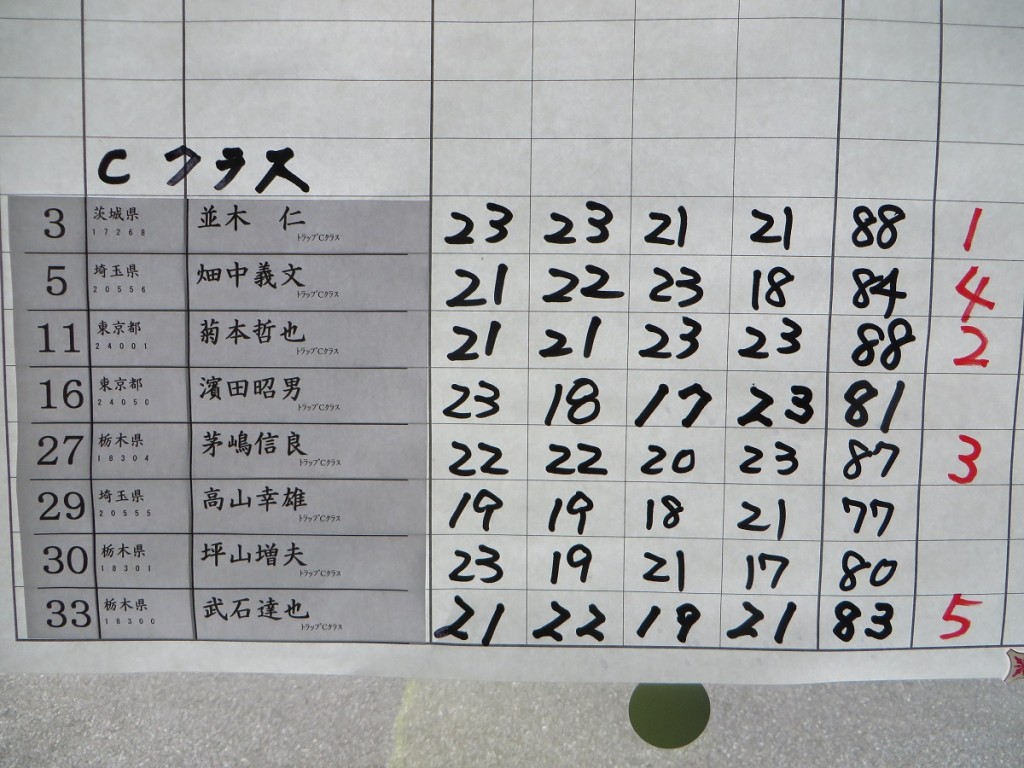 C クラス
3 茨城県 並木 仁 23 23 21 21 88 1
17268 トラップCクラス
5 埼玉県 畑中義文 21 22 23 18 84 4
20556 トラップCクラス
11 東京都 菊本哲也 21 21 23 23 88 2
24001 トラップCクラス
16 東京都 濱田昭男 23 18 17 23 81
24050 トラップCクラス
27 栃木県 茅嶋信良 22 22 20 23 87 3
18304 トラップCクラス
29 埼玉県 高山幸雄 19 19 18 21 77
20555 トラップCクラス
30 栃木県 坪山増夫 23 19 21 17 80
18301 トラップCクラス
33 栃木県 武石達也 21 22 19 21 83 5
18300 トラップCクラス